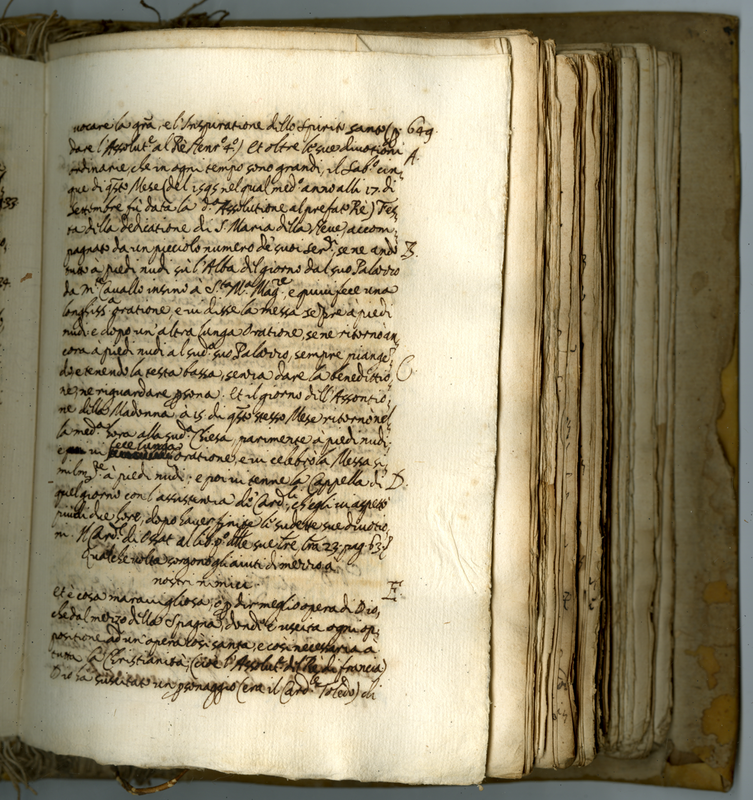 uocare la gra, e l'Inspiratione dello Spirito santo (p 649.
dare l'Assolut.e al Rè Henr.o 4.o) Et oltre le sue diuotioni A.
ordinarie, che in ogni tempo sono grandi, il Sab.o cin,
que di q̃sto Mese (del 1595 nel qual med.o anno alli 17. di
Settembre fù data la d.a Assolutione al prefato Rè) Fes,
ta della dedicatione di S. Maria della Neue, accom,
pagnato da un picciolo numero de suoi Ser.ri se ne andò B.
à piedi nudi sù l'Alba del giorno dal suo Palazzo
da M.te Cauallo insino a S.ta M.a Mag.re e quiui fece una
longhiss.a oratione, e ui disse la messa sẽpre à piedi
nudi e dopo un'altra lunga Oratione, se ne ritornò an,
cora à piedi nudi al sud.o suo Palazzo, sempre piangẽ,
do, e tenendo la testa bassa, senza dare la benedittio, C
ne, ne riguardare psona. Et il giorno dell'Assontio,
ne della Madonna, à 15. di q̃sto stesso Mese ritornò nel
la med.a hora alla sud.a Chiesa, parimente à piedi nudi,
e ui fece lunga oratione, e ui celebrò la Messa si,
milm.te à piedi nudi: e poi ui tenne la Cappella di D.
quel giorno con l'assistenza de Card.li, ch'egli ui aspettò
due hore, dopo hauer finite le sudette sue diuotio,
ni. Il Card.l di Ossat al lib.o p.o delle sue lre, lra 23. pag. 63.
Qualche uolta sorgono gli aiuti di mezzo a
nostri nimici. E.
Et è cosa marauigliosa, ò p dir meglio opera di Dio,
che dal mezzo della Spagna, dond'è uscita ogni op,
positione ad un'opera così santa, e così necessaria a
tutta la Christianità, (cioè l'Assolut.e del Rè di francia)
Dio ha suscitato un psonaggio (era il Card.le Toledo) di